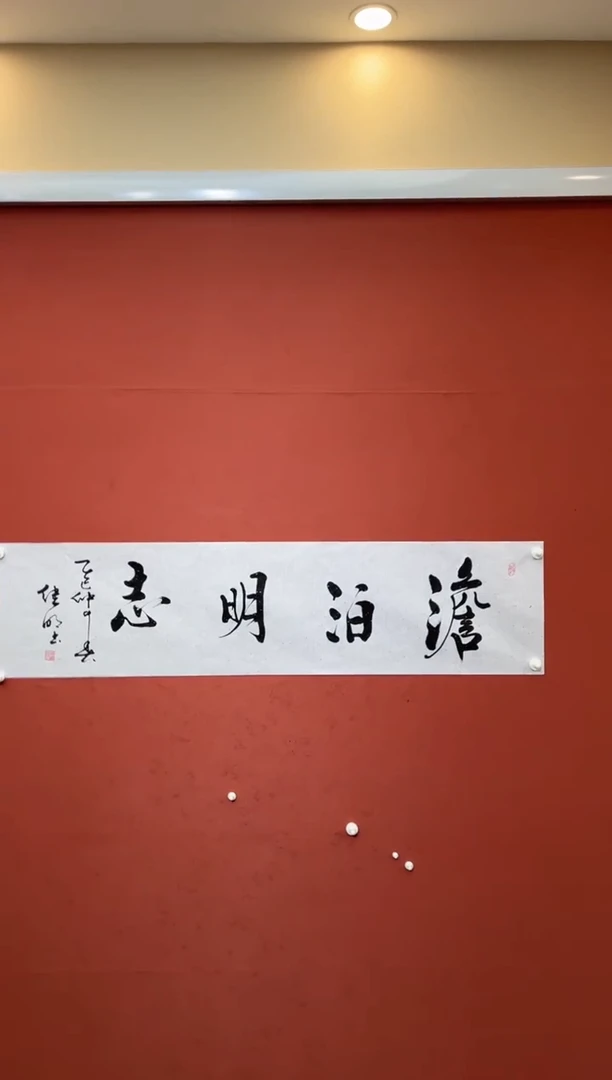 澹泊明志
乙巳仲春
佳明书